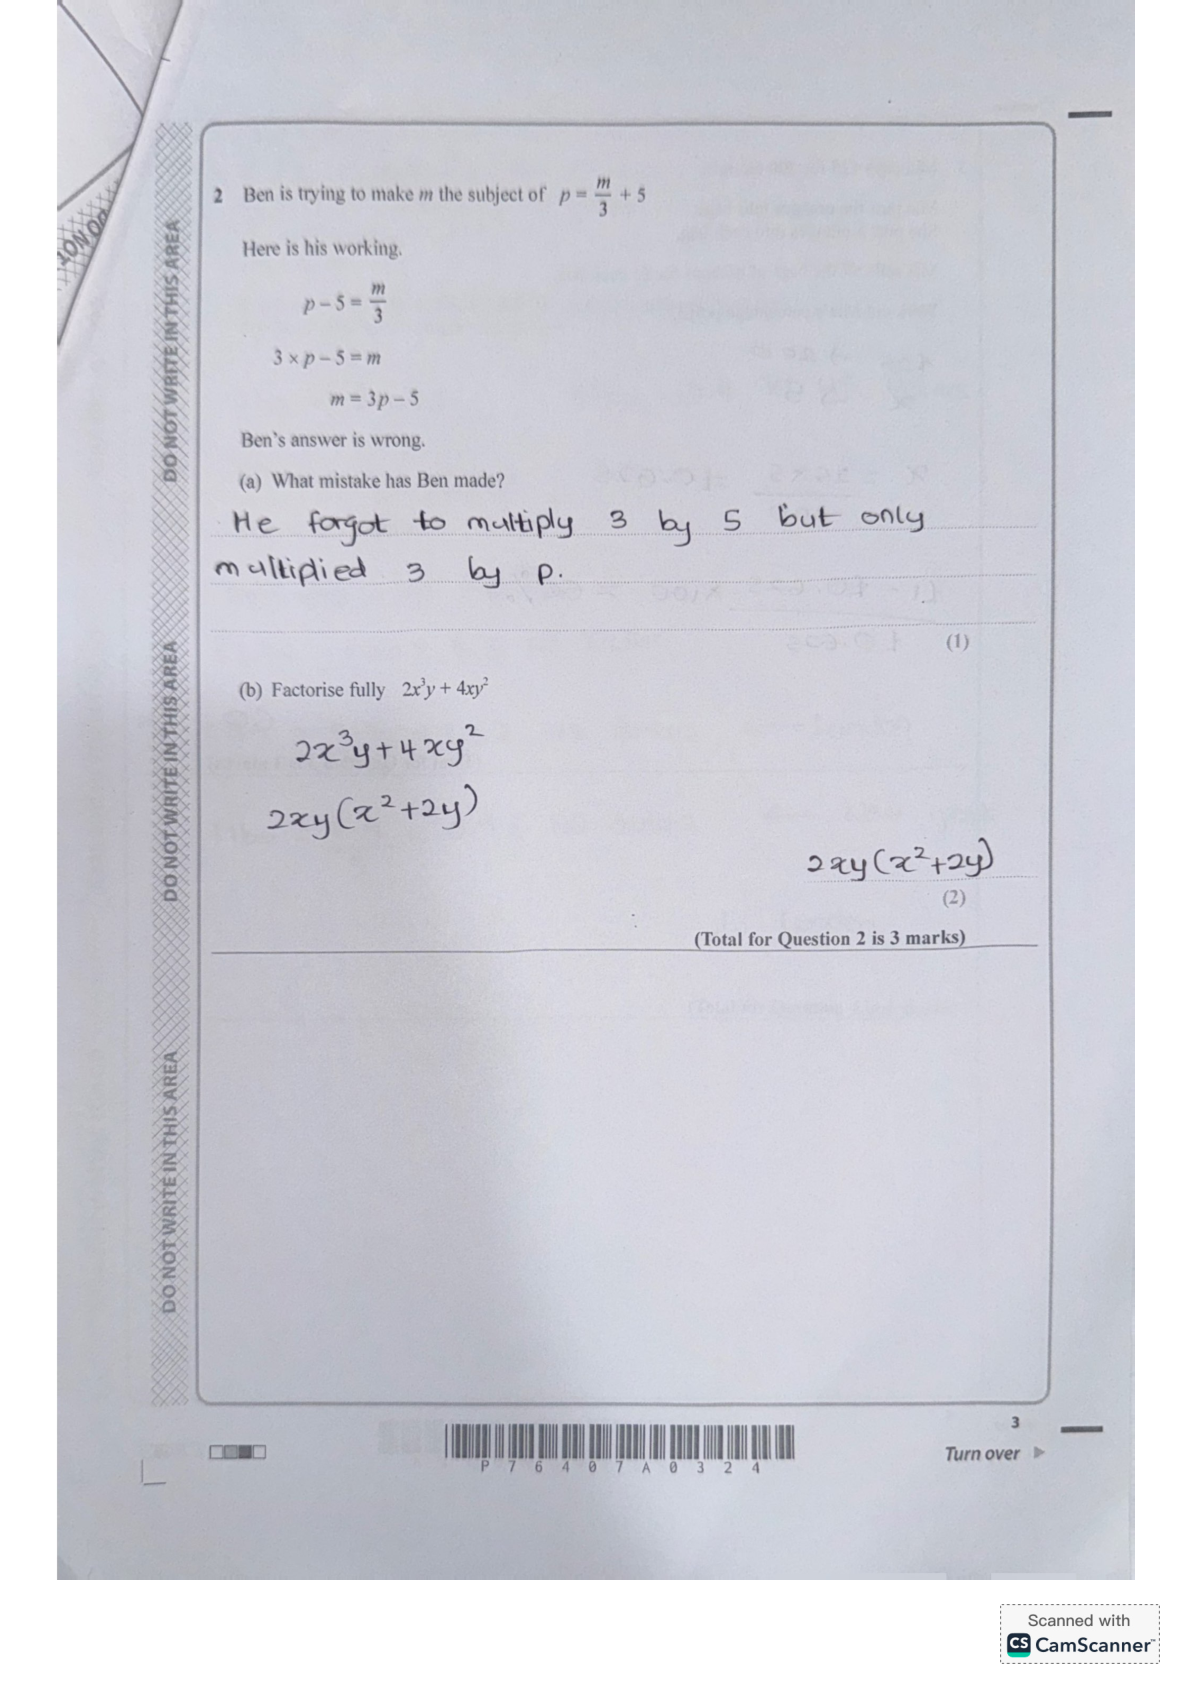 DO NOT
DO NOT WRITE IN THIS AREA
DO NOT WRITE IN THIS AREA
DO NOT WRITE IN THIS AREA
2 Ben is trying to make m the subject of p = m/3 + 5
Here is his working.
p – 5 = m/3
3 × p – 5 = m
m = 3p – 5
Ben's answer is wrong.
(a) What mistake has Ben made?
He forgot to multiply 3 by 5 but only
multiplied 3 by p.
(1)
(b) Factorise fully 2x³y + 4xy²
2x³y + 4xy²
2xy(x²+2y)
2xy(x²+2y)
(2)
(Total for Question 2 is 3 marks)
3
P 7 6 4 0 7 A 0 3 2 4
Turn over
Scanned with
CS CamScanner